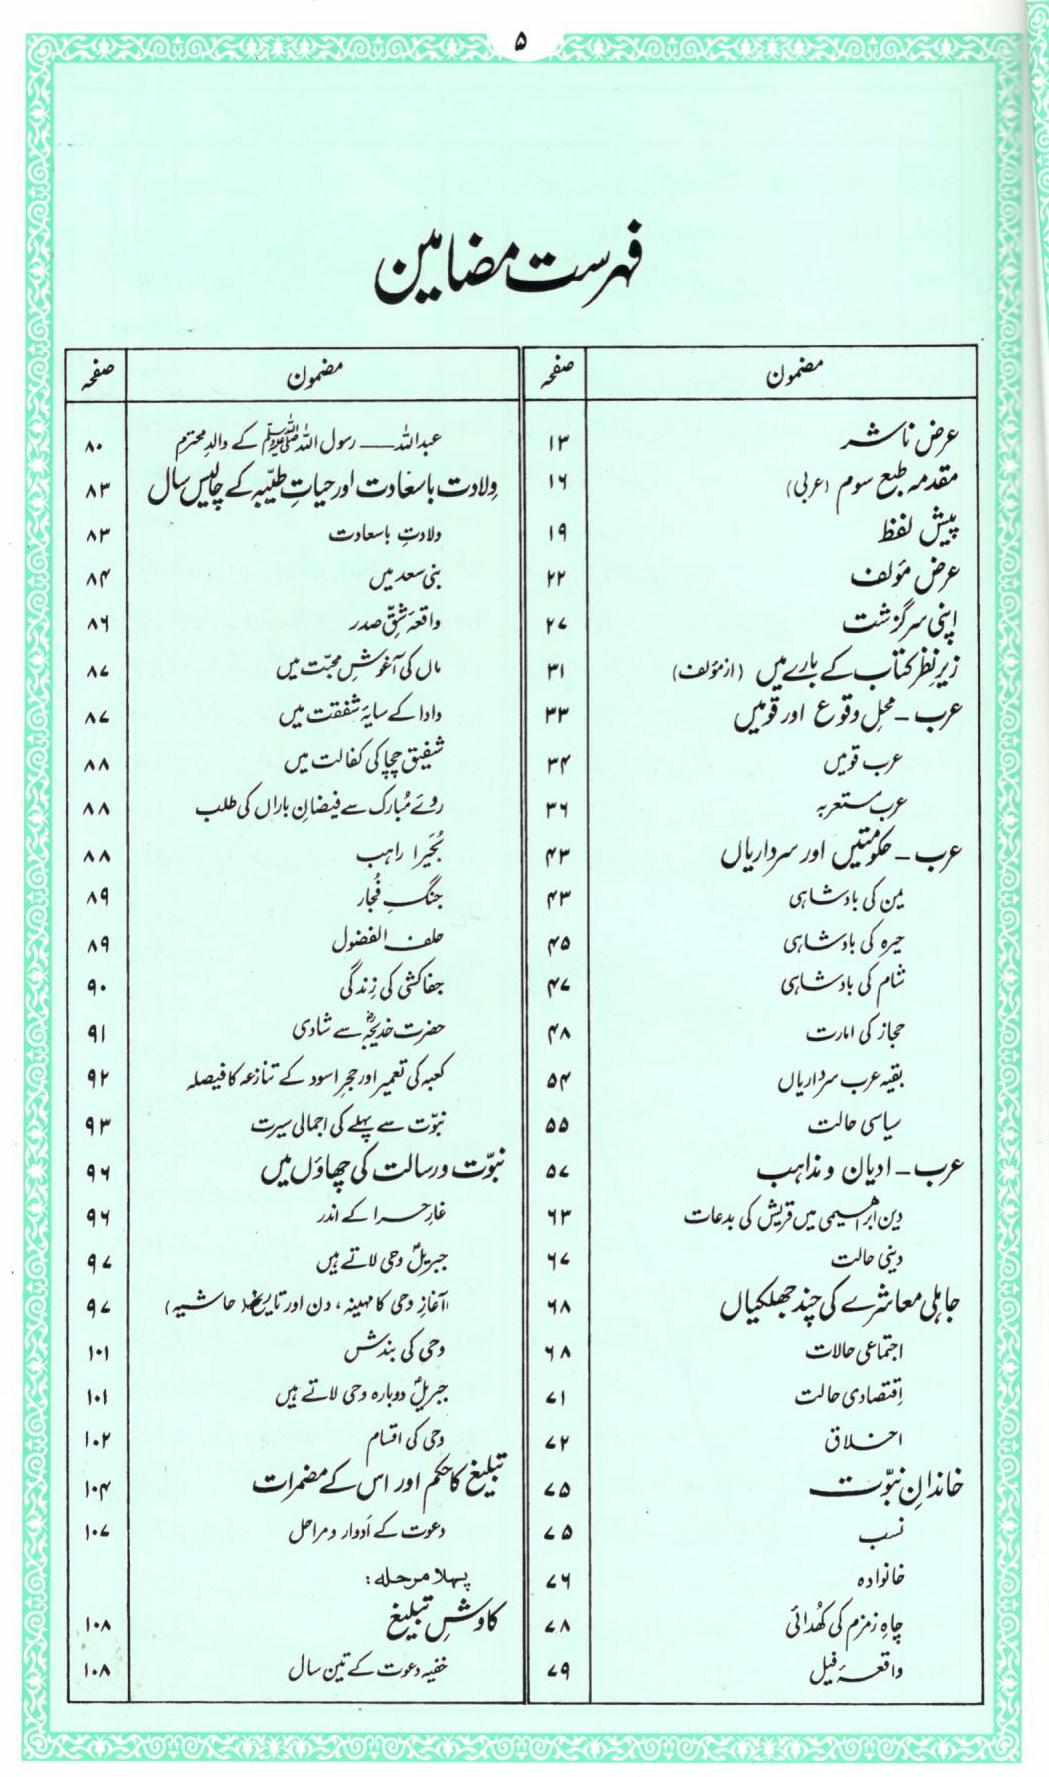 ۵
فہرست مضامین
مضمون صفحہ
عرض ناشر ۱۳
مقدمہ طبع سوم (عربی) ۱۶
پیش لفظ ۱۹
عرض مؤلف ۲۲
اپنی سرگزشت ۲۷
زیرِ نظر کتاب کے بارے میں (از مؤلف) ۳۱
عرب - محلِ وقوع اور قومیں ۳۳
عرب قومیں ۳۴
عرب مستعربہ ۳۶
عرب - حکومتیں اور سرداریاں ۴۳
یمن کی بادشاہی ۴۳
حیرہ کی بادشاہی ۴۵
شام کی بادشاہی ۴۷
حجاز کی امارت ۴۸
بقیہ عرب سرداریاں ۵۴
سیاسی حالت ۵۵
عرب - ادیان و مذاہب ۵۷
دین ابراہیمی میں قریش کی بدعات ۶۳
دینی حالت ۶۷
جاہلی معاشرے کی چند جھلکیاں ۶۸
اجتماعی حالات ۶۸
اِقتصادی حالت ۷۱
اخلاق ۷۲
خاندانِ نبوّت ۷۵
نسب ۷۵
خانوادہ ۷۶
چاہِ زمزم کی کھُدائی ۷۸
واقعۂ فیل ۷۹
مضمون صفحہ
عبداللہ ــــ رسول اللہ ﷺ کے والدِ محترم ۸۰
وِلادت باسعادت اور حیاتِ طیّبہ کے چالیس سال ۸۳
ولادتِ باسعادت ۸۳
بنی سعد میں ۸۴
واقعۂ شقِّ صدر ۸۶
ماں کی آغوشِ محبّت میں ۸۷
دادا کے سایۂ شفقت میں ۸۷
شفیق چچا کی کفالت میں ۸۸
روئے مُبارک سے فیضانِ باراں کی طلب ۸۸
بُحَیرا راہب ۸۸
جنگِ فُجار ۸۹
حلف الفضول ۸۹
جفاکشی کی زِندگی ۹۰
حضرت خدیجہؓ سے شادی ۹۱
کعبہ کی تعمیر اور حجرِ اسود کے تنازعہ کا فیصلہ ۹۲
نبوّت سے پہلے کی اجمالی سیرت ۹۳
نبوّت و رسالت کی چھاؤں میں ۹۶
غارِ حرا کے اندر ۹۶
جبریلؑ وحی لاتے ہیں ۹۷
آغازِ وحی کا مہینہ، دن اور تاریخ (حاشیہ) ۹۷
وحی کی بندش ۱۰۱
جبریلؑ دوبارہ وحی لاتے ہیں ۱۰۱
وحی کی اقسام ۱۰۲
تبلیغ کا حکم اور اس کے مضمرات ۱۰۴
دعوت کے اَدوار و مراحل ۱۰۷
پہلا مرحلہ:
کاوشِ تبلیغ ۱۰۸
خفیہ دعوت کے تین سال ۱۰۸